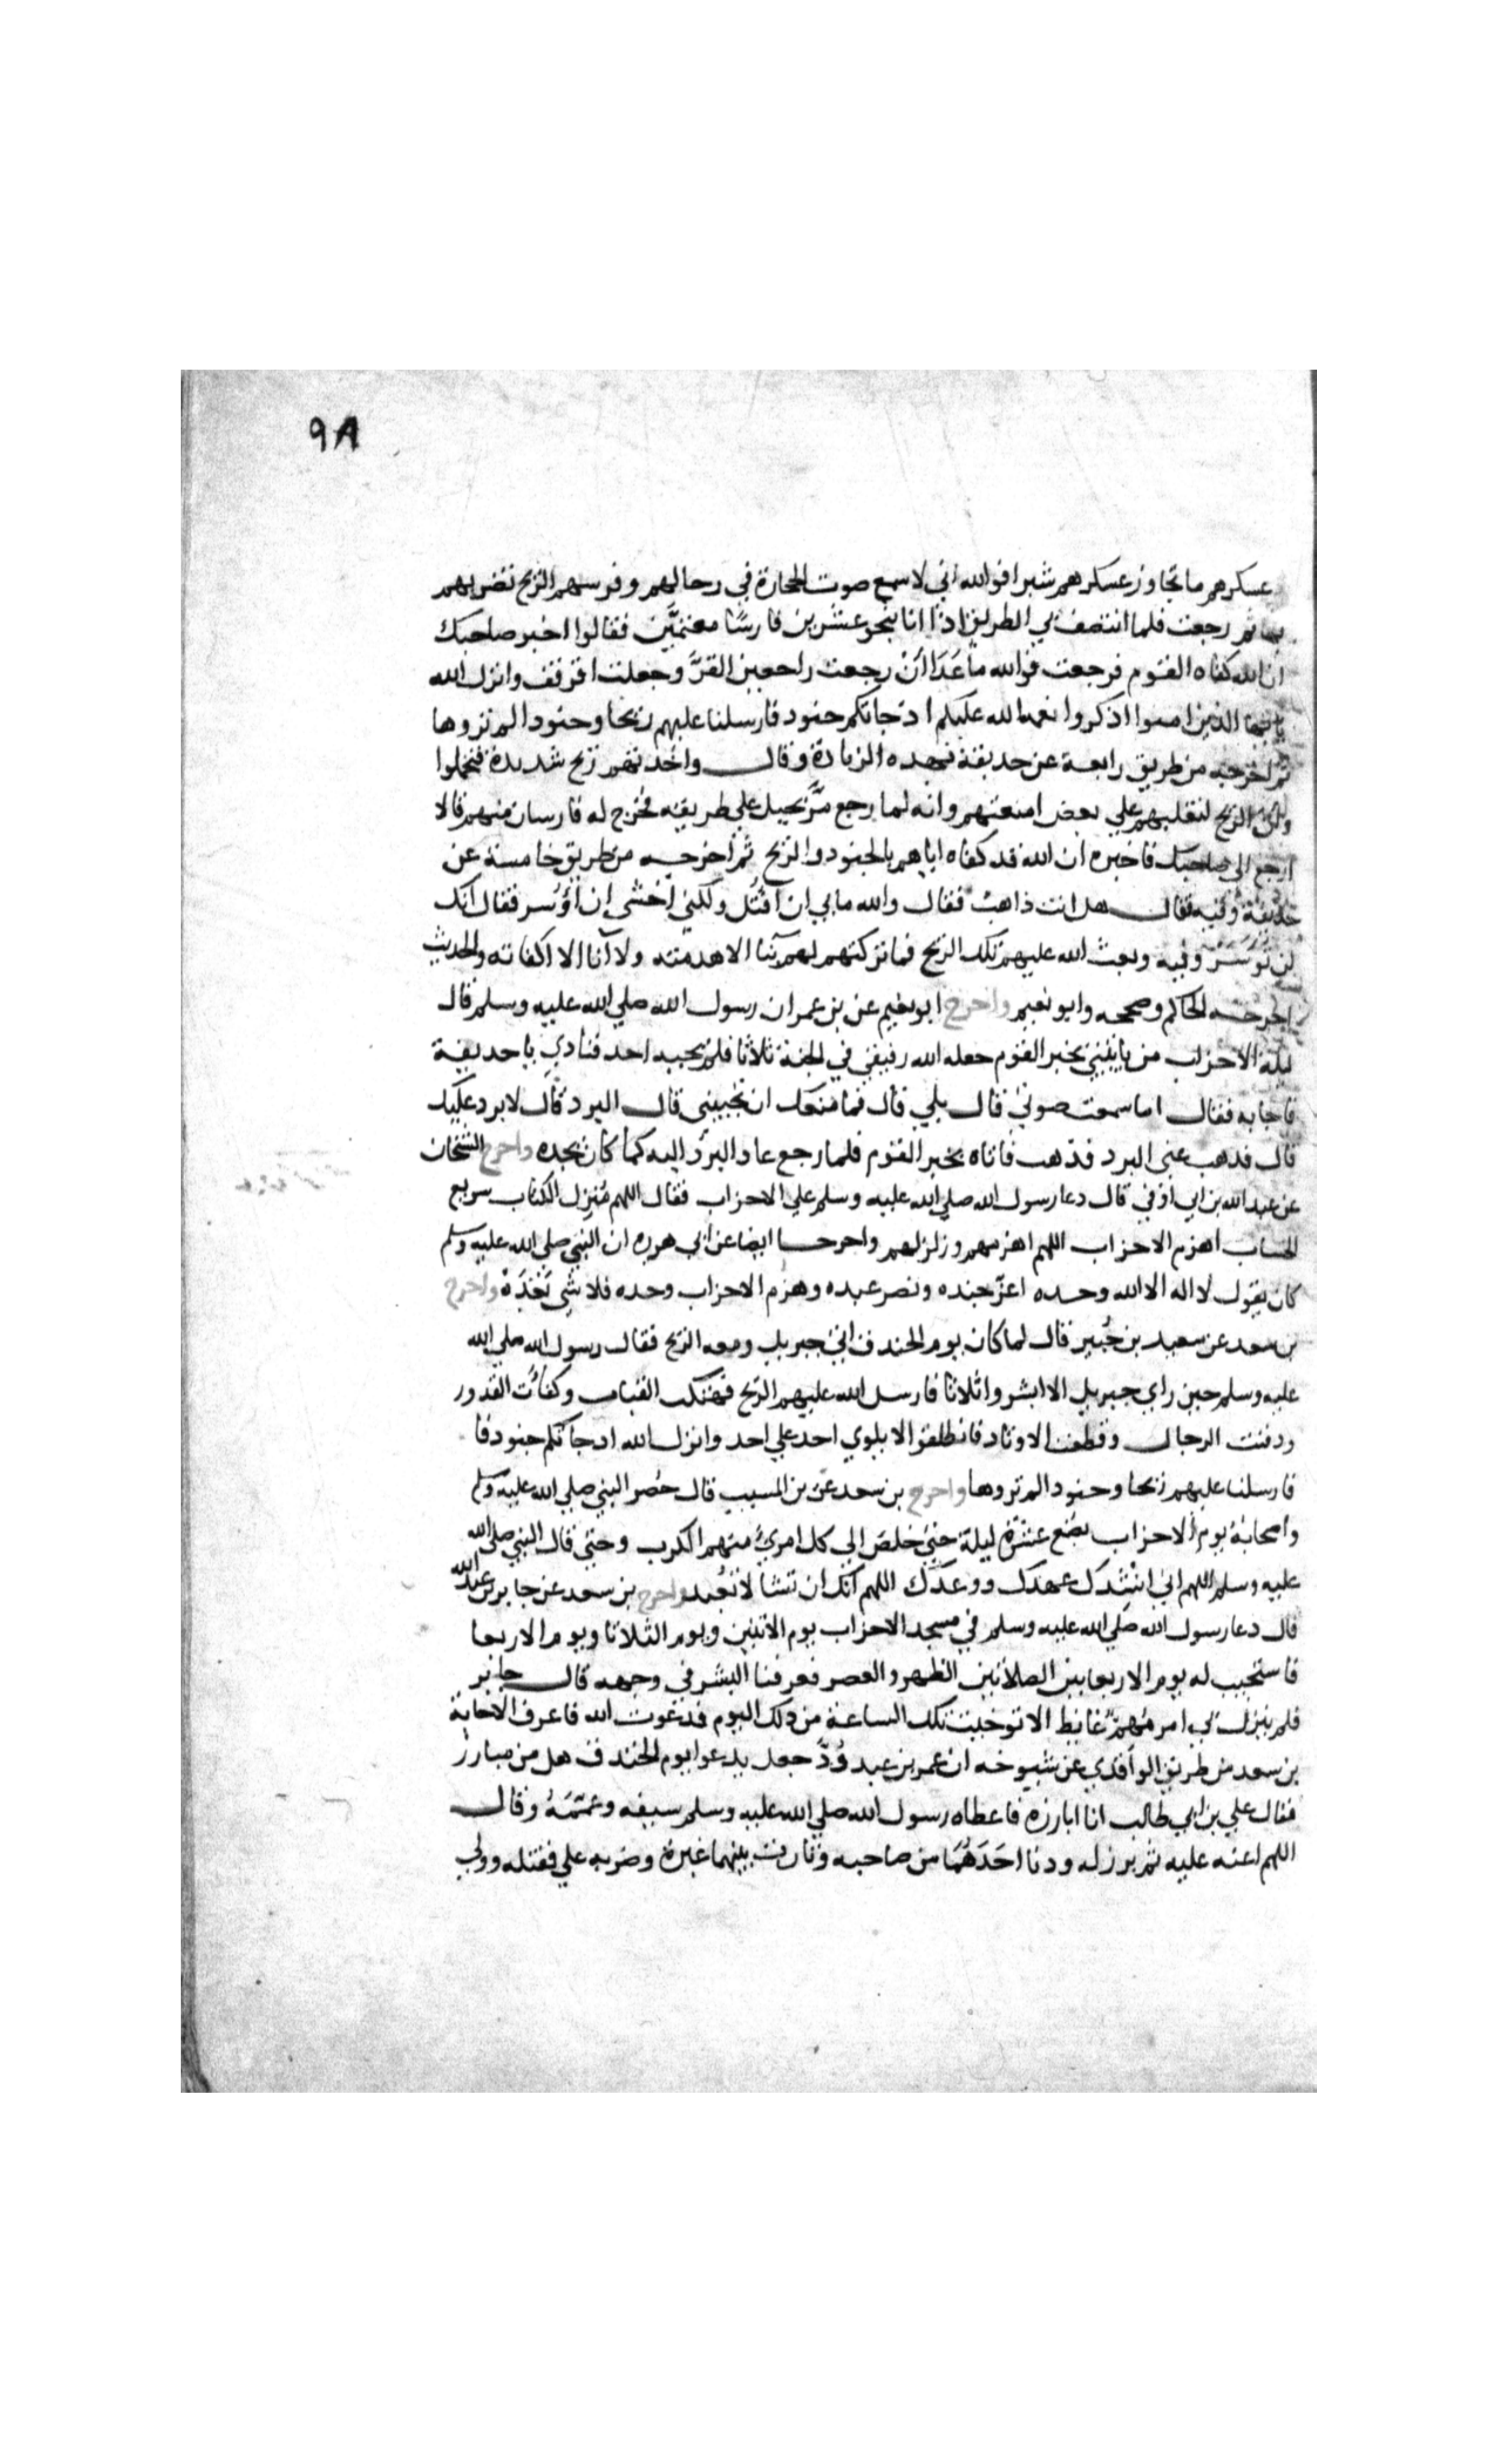 ٩٨
عسكرهم ما تجاوز عسكرهم شبرا فوالله اني لاسمع صوت الحجارة في رحالهم وفرسهم الريح تضربهم
بها ثم رجعت فلما انتصف بي الطريق اذا انا بنحو عشرين فارسًا معتمَّين فقالوا اخبر صاحبك
ان الله كفاه القوم فرجعت فوالله ما عَدَا اَنْ رجعت راجعني القرَّ وجعلت اقرقف وانزل الله
يا ايها الذين امنوا اذكروا نعمه الله عليكم اذ جاتكم جنود فارسلنا عليهم ريحا وجنودا لم تروها
ثم اخرجه من طريق رابعة عن حذيفة بهذه الزيادة وقال واخذتهم ريح شديدة فتحملوا
وان الريح لتقلبهم علي بعض امتعتهم وانه لما رجع مرَّ بخيل علي طريقه فخرج له فارسان منهم قالا
ارجع الي صاحبك فاخبره ان الله قد كفاه اياهم بالجنود والريح ثم اخرجه من طريق خامسة عن
حذيفة وفيه فقال هل انت ذاهب فقال والله ما بي ان اقتُل ولكني اخشي ان اؤسر فقال انك
لن تؤسَر وفيه وبعث الله عليهم تلك الريح فما تركتهم لهم بنا الا هدمته ولا آنا الا اكفاته والحديث
اخرجه الحاكم وصححه وابو نعيم واخرج ابو نعيم عن بن عمر ان رسول الله صلي الله عليه وسلم قال
ليلة الاحزاب من ياتيني بخبر القوم جعله الله رفيقي في الجنة ثلاثا فلم يجبه احد فنادي يا حذيفة
فاجابه فقال اما سمعت صوتي قال بلي قال فما منعك ان تجيبني قال البرد قال لا برد عليك
قال فذهب عني البرد فذهب فاتاه بخبر القوم فلما رجع عاد البرد اليه كما كان يجده واخرج الشيخان
عن عبد الله بن ابي اوفي قال دعا رسول الله صلي الله عليه وسلم علي الاحزاب فقال اللهم مُنزل الكتاب سريع
الحساب اهزم الاحزاب اللهم اهزمهم وزلزلهم واخرجا ايضا عن ابي هريره ان النبي صلي الله عليه وسلم
كان يقول لا اله الا الله وحده اعزّ جنده ونصر عبده وهزم الاحزاب وحده فلا شي بَعْدَهُ واخرج
بن سعد عن سعيد بن جُبير قال لما كان يوم الخندف اتي جبريل ومعه الريح فقال رسول الله صلي الله
عليه وسلم حين راي جبريل الا ابشروا ثلاثا فارسل الله عليهم الريح فهتكت القباب وكفات القدور
ودفنت الرجال وقطعت الاوتاد فانطلقوا لا يلوي احد علي احد وانزل الله اذ جاتكم جنود فا
فارسلنا عليهم ريحا وجنودا لم تروها واخرج بن سعد عن بن المسيب قال حُصر النبي صلي الله عليه وسلم
واصحابهُ يوم الاحزاب بضع عشرة ليلة حتي خلصَ الي كل امريُ منهم الكرب وحتي قال النبي صلي الله
عليه وسلم اللهم اني انشِدك عهدك ووعدك اللهم انك ان تشا لا تعُبد واخرج بن سعد عن جابر بن عبد الله
قال دعا رسول الله صلي الله عليه وسلم في مسجد الاحزاب يوم الاثنين ويوم الثلاثا ويوم الاربعا
فاستجيب له يوم الاربعا بين الصلاتين الظهر والعصر فعرفنا البشر في وجهه قال جابر
فلم ينزل بي امر مُهِمّ غايظ الا توخيت تلك الساعة من ذلك اليوم فدعوت الله فاعرف الاجابة
بن سعد من طريق الواقدي عن شيوخه ان عمر بن عبد وُدّ جعل يدعوا يوم الخندف هل من مبارز
فقال علي بن ابي طالب انا ابارزه فاعطاه رسول الله صلي الله عليه وسلم سيفه وعمّمَهُ وقال
اللهم اعنه عليه ثم برز له ودنا احَدهُمَا من صاحبه وثارت بينهما غبرة وضربه علي فقتله وولي